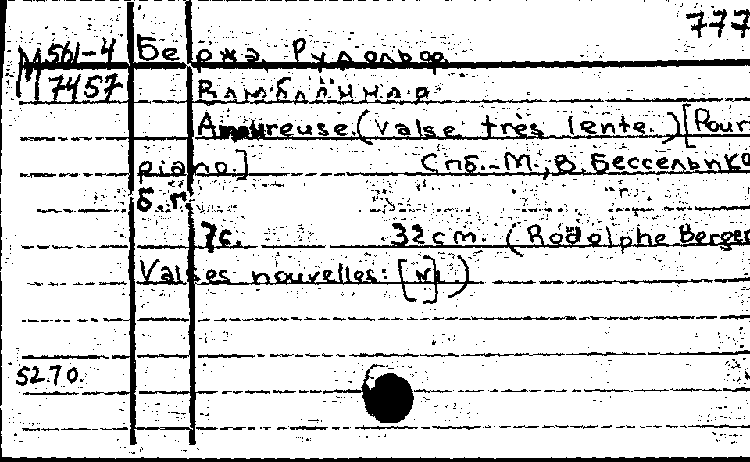 777
М 561-4 Бержэ. Рудольф
7457 Влюблённая
Amoureuse. (Valse très lente.) [Pour
piano.] Спб.-М., В. Бессель и ко
б.г.
7с. 32 cm. (Rodolphe Berger
Valses nouvelles: [№])
5270.